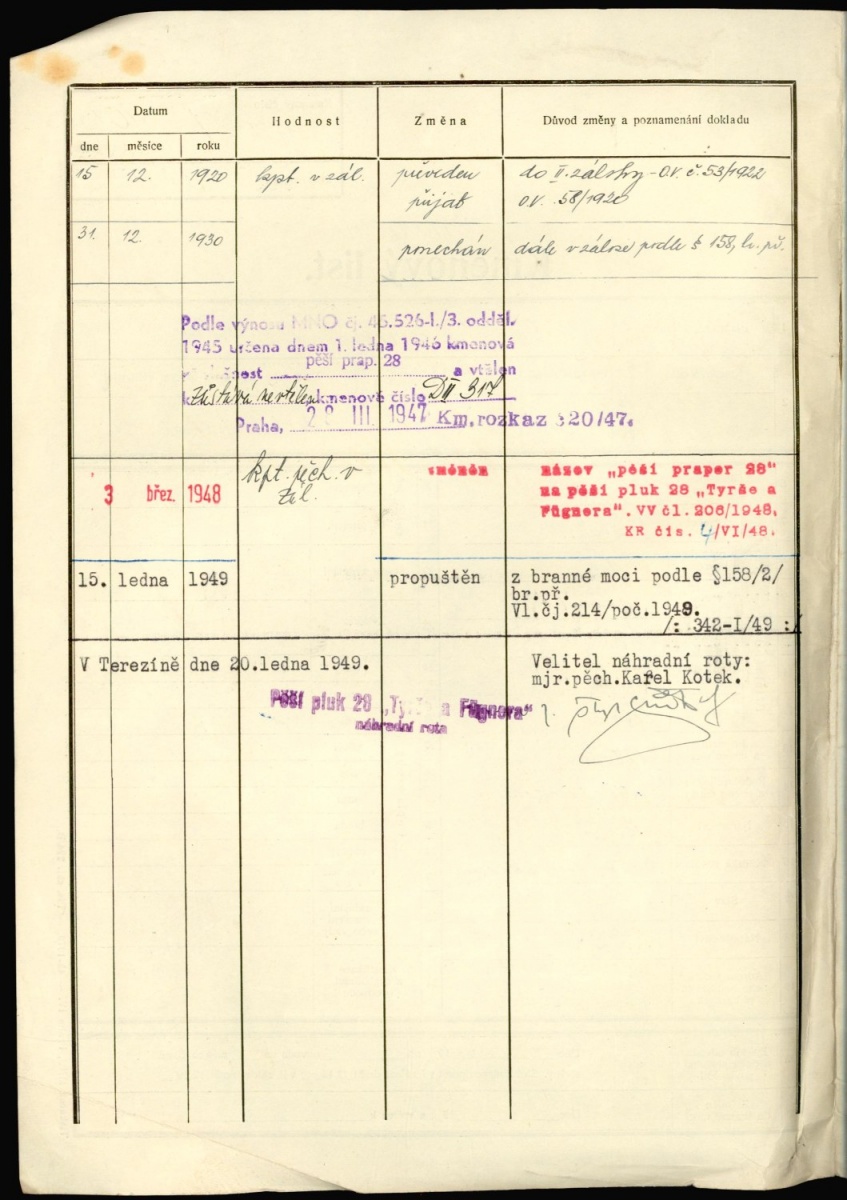 Datum
Hodnost
Změna
Důvod změny a poznamenání dokladu
dne měsíce roku
15 12. 1920 kpt. v zál. převeden do II. zálohy - O.V. č. 53/1922
přijat O.V. 58/1920
31. 12. 1930 ponechán dále v záloze podle § 158, br. př.
Podle výnosu MNO čj. 45.526-I./3. odděl.
1945 určena dnem 1. ledna 1946 kmenová
pěší prap. 28
a vtělen
zůstává kmenové číslo DII 317
Praha, 28 III. 1947 Km. rozkaz 20/47.
3 břez. 1948 kpt. pěch. v zál. změněn název „pěší prapor 28"
na pěší pluk 28 „Tyrše a
Fügnera". VV čl. 206/1948,
KR čís. 4/VI/48.
15. ledna 1949 propuštěn z branné moci podle §158/2/
br.př.
Vl.čj.214/poč.1949.
/: 342-I/49 :/
V Terezíně dne 20.ledna 1949. Velitel náhradní roty:
mjr.pěch.Karel Kotek.
Pěší pluk 28 „Tyrše a Fügnera"
náhradní rota